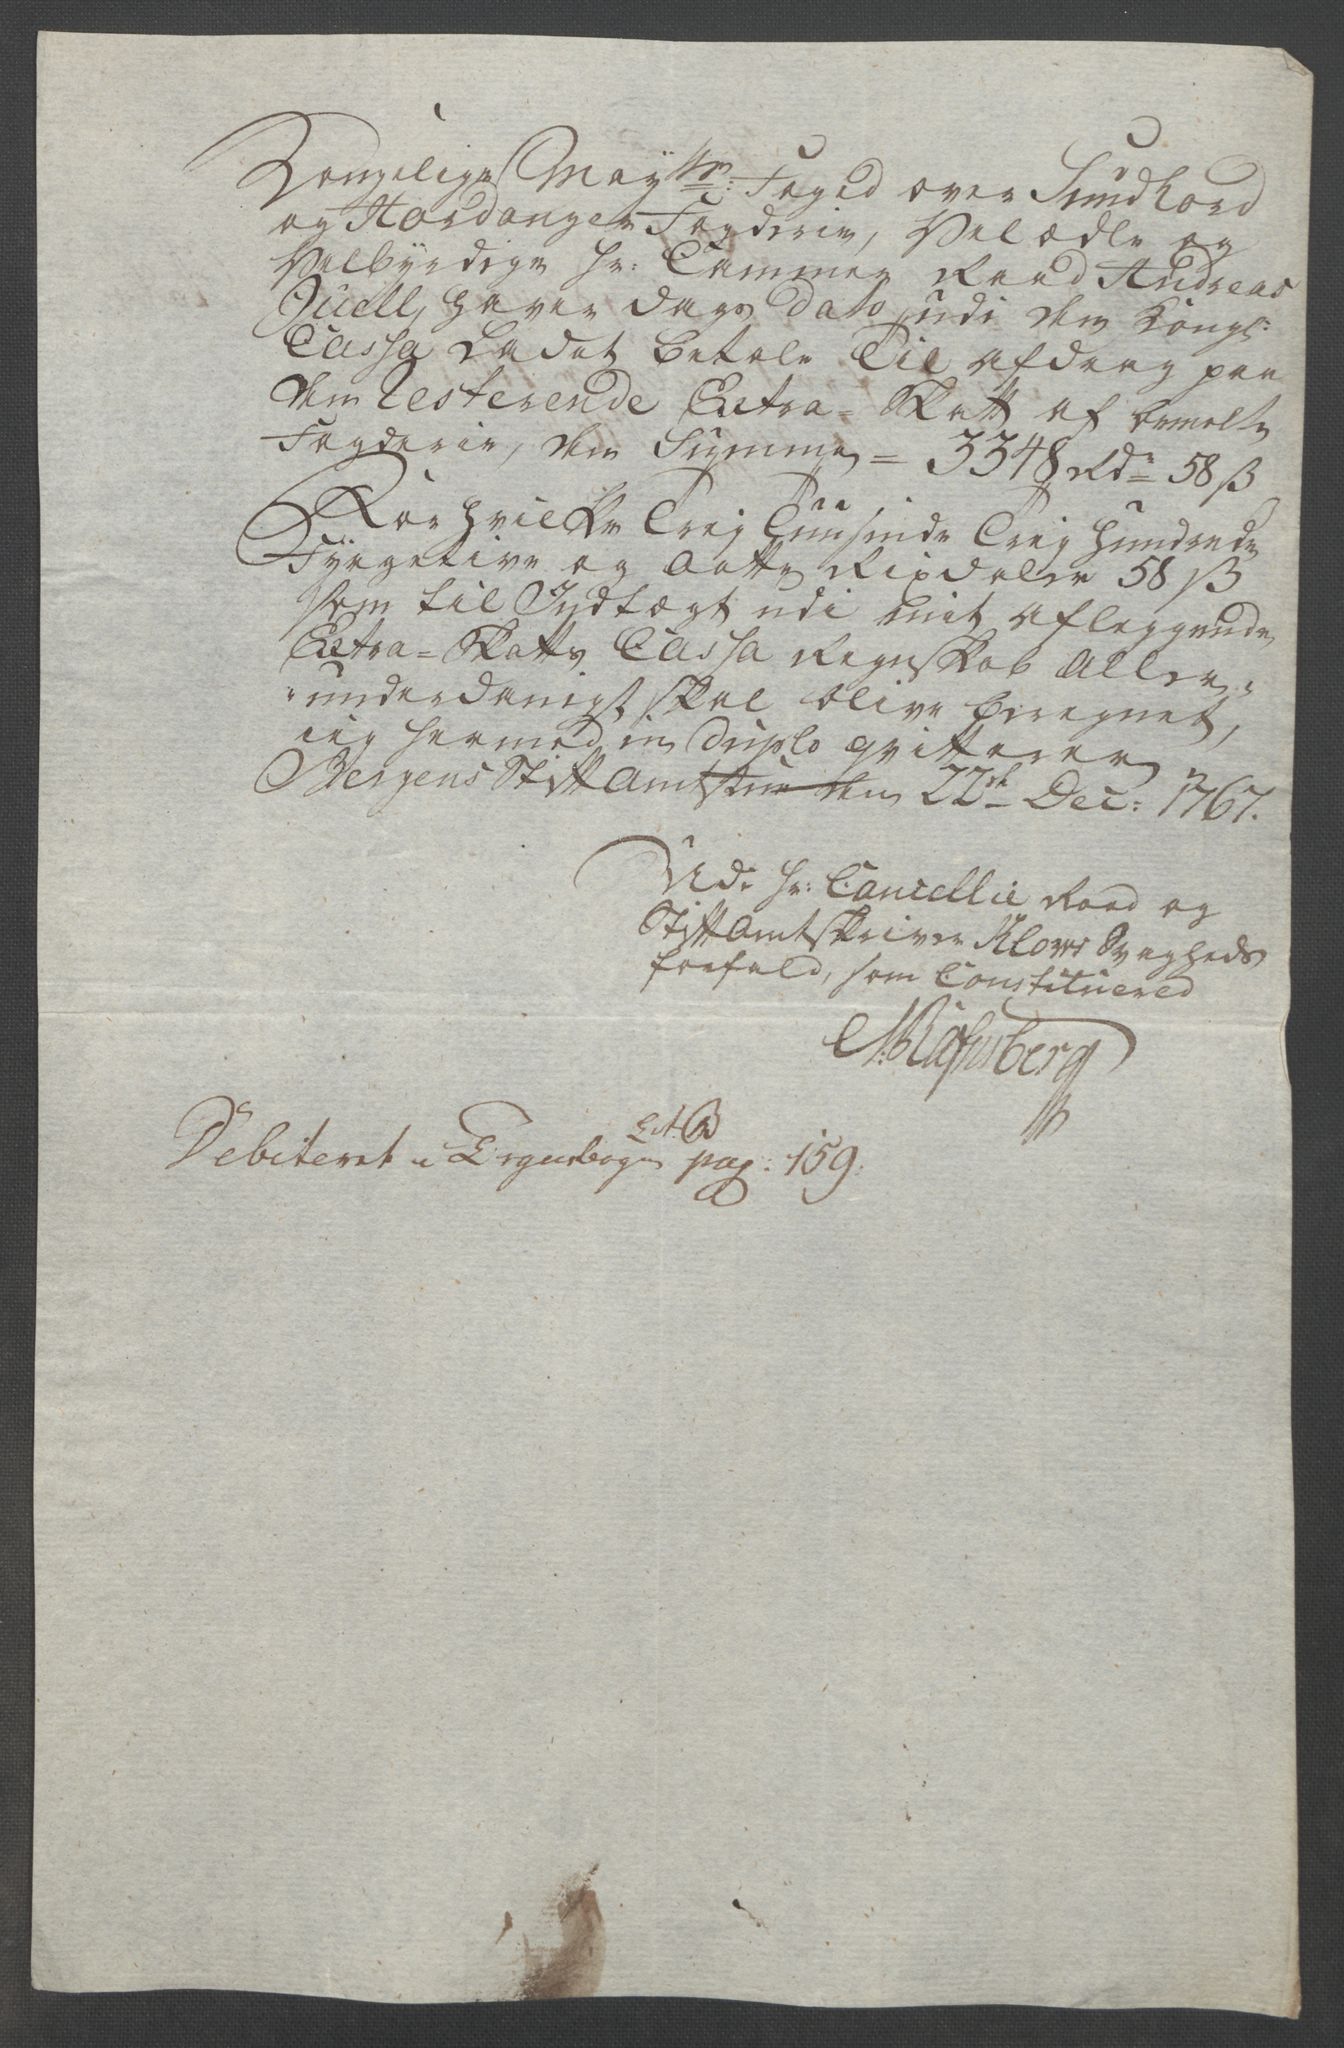 Kongelige May<sup>ts</sup>: Foged over Sundhord
og Hardanger Fogderie, Velædle og
Velbyrdige Hr: Cammer Raad Andreas
Juell, haver dags dato udi den Kongl:
Cassa Ladet betale Til afdrag paa
den Resterende Extra-Skatt af bemelte
Fogderie, den Summa = 3348 Rdr 58 ß
For hvilke Treij Tuusinde Treij Hundrede
Fyrgetive og Aatte Rixdaler 58 ß
som til Indtægt udi mit aflæggende
Extra-Skatts Cassa Regnskab Aller-
underdanigst skal blive beregnet,
ieg hermed in duplo qvitterer
Bergens StiftAmtstue den 22de Dec: 1767.
Udi Hr: Cancellie Raad og
StiftAmtskriver Klows Svagheds
forfald, som Constituered
Debiteret i Extrabogen Lit: B pag: 159.